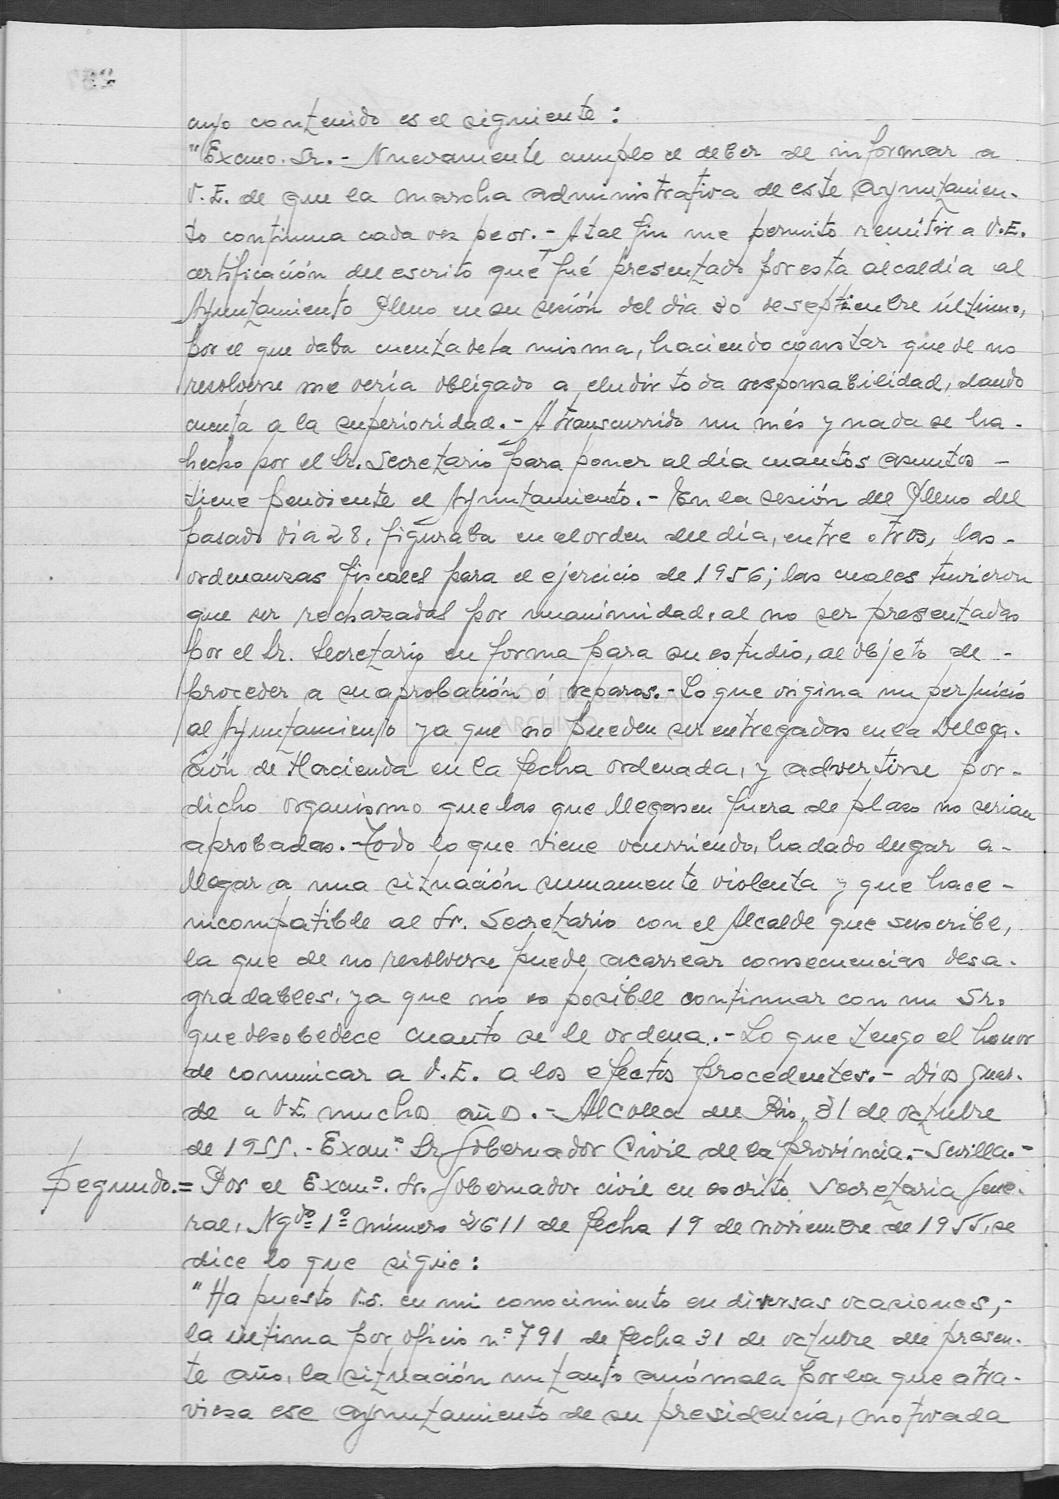 cuyo contenido es el siguiente:
"Excmo. Sr. - Nuevamente cumplo el deber de informar a
V.E. de que la marcha administrativa de este Ayuntamien-
to continua cada vez peor. - A tal fin me permito remitir a V.E.
certificación del escrito que fué presentado por esta alcaldía al
Ayuntamiento Pleno en su sesión del dia 30 de septiembre último,
por el que daba cuenta de la misma, haciendo constar que de no
resolverse me vería obligado a eludir toda responsabilidad, dando
cuenta a la superioridad. - A transcurrido un més y nada se ha -
hecho por el Sr. Secretario para poner al día cuantos asuntos -
tiene pendiente el Ayuntamiento. - En la sesión del Pleno del
pasado dia 28, figuraba en el orden del día, entre otros, las -
ordenanzas fiscales para el ejercicio de 1956; las cuales tuvieron
que ser rechazadas por unanimidad, al no ser presentadas
por el Sr. Secretario en forma para su estudio, al objeto de -
proceder a su aprobación ó reparos. - Lo que origina un perjuicio
al Ayuntamiento ya que no pueden ser entregadas en la Delega-
ción de Hacienda en la fecha ordenada, y advertirse por -
dicho organismo que las que llegasen fuera de plazo no serian
aprobadas. - Todo lo que viene ocurriendo, ha dado lugar a -
llegar a una situación sumamente violenta y que hace -
incompatible al Sr. Secretario con el Alcalde que suscribe,
la que de no resolverse puede acarrear consecuencias desa-
gradables, ya que no es posible continuar con un Sr.
que desobedece cuanto se le ordena. - Lo que tengo el honor
de comunicar a V.E. a los efectos procedentes. - Dios guar-
de a V.E. muchos años. - Alcolea del Rio, 31 de octubre
de 1955. - Excmº Sr Gobernador Civil de la provincia. - Sevilla. -
Segundo. = Por el Excmº. Sr. Gobernador civil en escrito Secretaria Gene-
ral, Ngdº 1º número 2611 de fecha 19 de noviembre de 1955, se
dice lo que sigue:
"Ha puesto V.S. en mi conocimiento en diversas ocasiones, -
la última por oficio nº 791 de fecha 31 de octubre del presen-
te año, la situación un tanto anómala por la que atra-
viesa ese ayuntamiento de su presidencia, motivada
DIPUTACIÓN DE SEVILLA
ARCHIVO